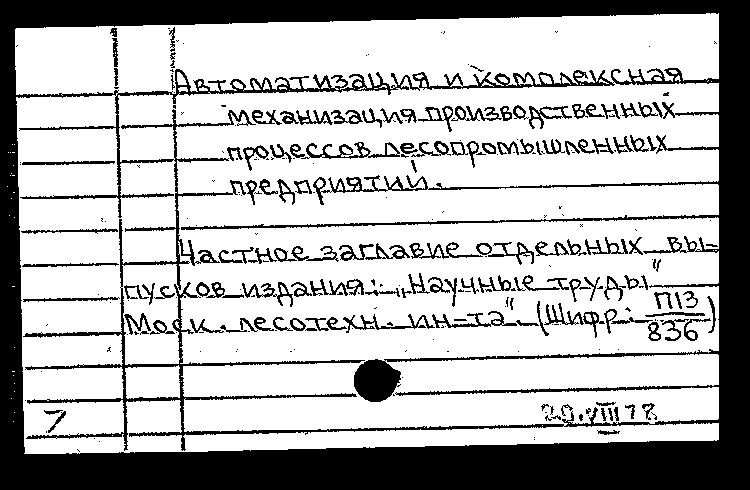 Автоматизация и комплексная
механизация производственных
процессов лесопромышленных
предприятий.
Частное заглавие отдельных вы-
пусков издания: „Научные труды"
Моск. лесотехн. ин-та". (Шифр: П13/836)
7 20.VIII 78